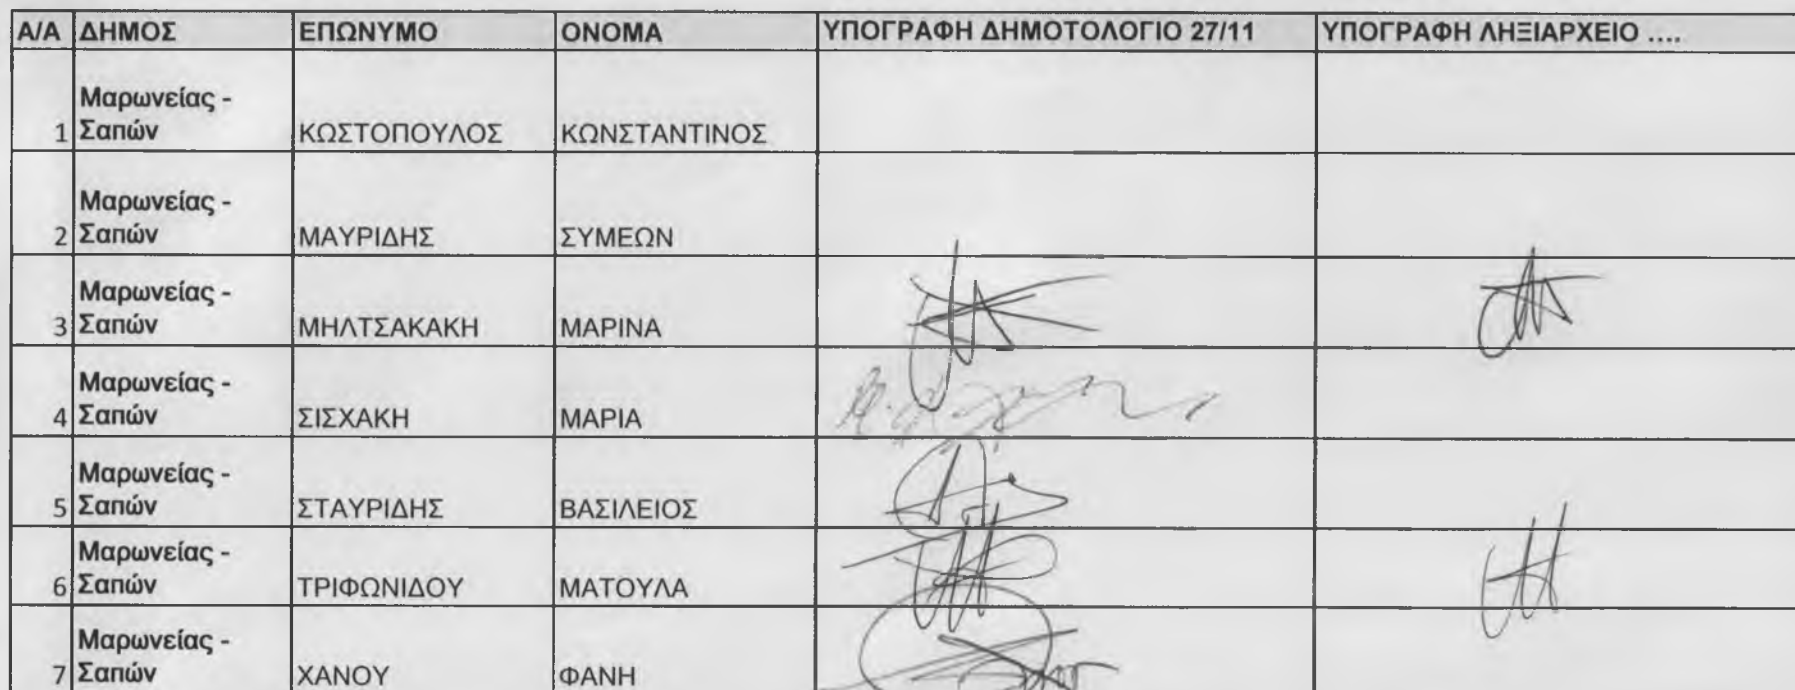 Α/Α ΔΗΜΟΣ ΕΠΩΝΥΜΟ ΟΝΟΜΑ ΥΠΟΓΡΑΦΗ ΔΗΜΟΤΟΛΟΓΙΟ 27/11 ΥΠΟΓΡΑΦΗ ΛΗΞΙΑΡΧΕΙΟ ....
Μαρωνείας -
1 Σαπών ΚΩΣΤΟΠΟΥΛΟΣ ΚΩΝΣΤΑΝΤΙΝΟΣ
Μαρωνείας -
2 Σαπών ΜΑΥΡΙΔΗΣ ΣΥΜΕΩΝ
Μαρωνείας -
3 Σαπών ΜΗΛΤΣΑΚΑΚΗ ΜΑΡΙΝΑ
Μαρωνείας -
4 Σαπών ΣΙΣΧΑΚΗ ΜΑΡΙΑ
Μαρωνείας -
5 Σαπών ΣΤΑΥΡΙΔΗΣ ΒΑΣΙΛΕΙΟΣ
Μαρωνείας -
6 Σαπών ΤΡΙΦΩΝΙΔΟΥ ΜΑΤΟΥΛΑ
Μαρωνείας -
7 Σαπών ΧΑΝΟΥ ΦΑΝΗ